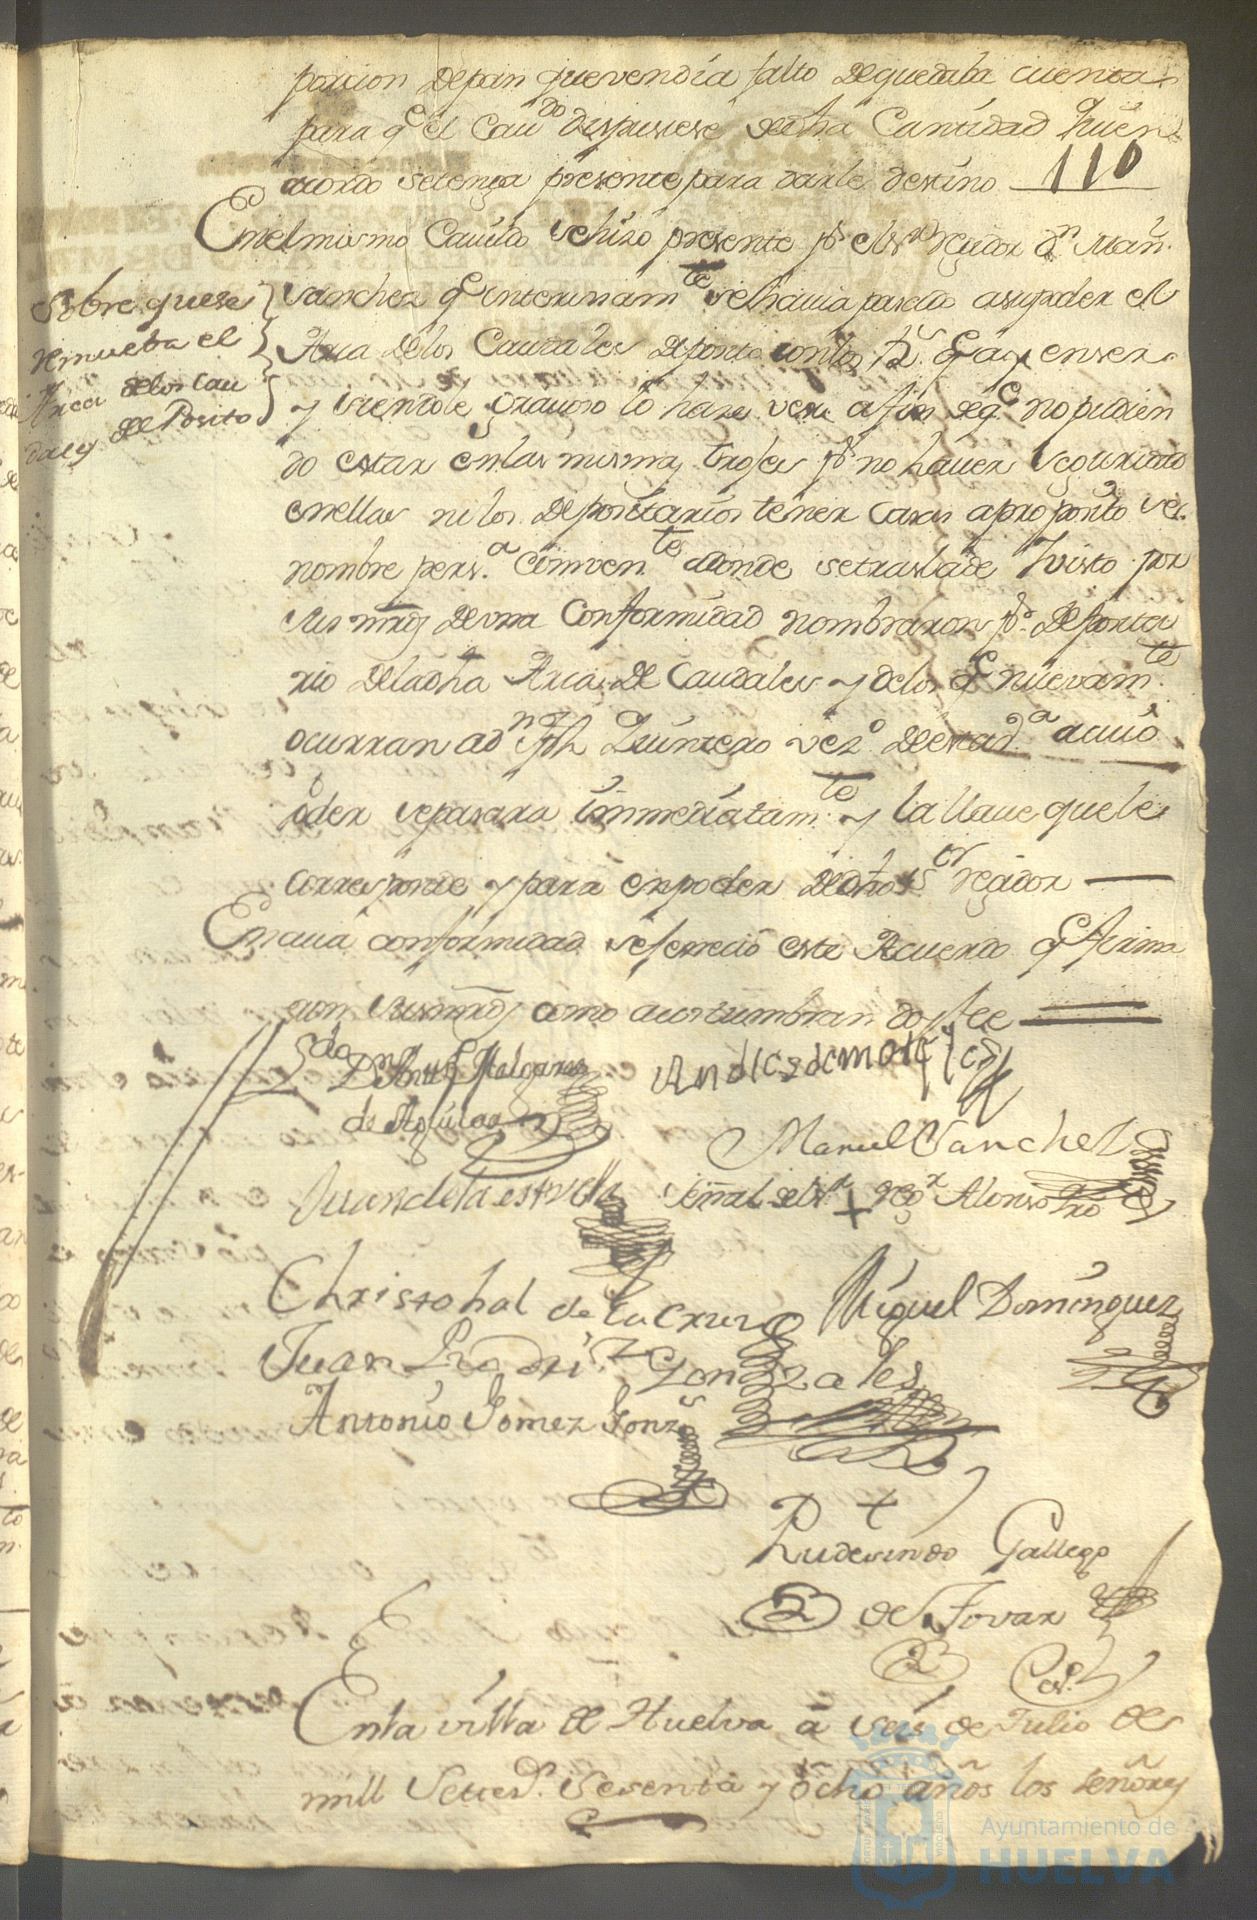 porcion de pan que vendia falto de quedaba cuenta
para q.e el Cav.do dispusiese dedha Cantidad y huen
acordo setenga presente para darle destino
110
Enelmismo Cavildo sehizo presente p.r el s.r regidor d.n Man.l
Sobre quese
remueba el
Arca delos Cau
dales de Posito
sanchez q.e interinam.te sehavia pasado asupoder el
Arca delos Caudales deposito con los
y siendole gravoso lo hase ver a fin deq.e no pudien
do estar enlas mismas troses p.r no haver seguridad
enellas nilos depositarios tener casas aproposito se
nombre pers.a comben.te adonde setraslade Y visto por
sus mrds deuna Conformidad nombraron p.r deposita
rio deladha Arca de Caudales y delos q.e nuevam.te
ocurran ad.n Jph Quintero vez.o deestad.a acuio
poder sepasara inmediatam.te y la llave quele
corresponde y para enpoder dedho s.or regidor
Encuia conformidad sefenecio este Acuerdo q.e firma
ron susmrds como acostumbran doy fee
L.do D.n Ant.o Melgarejo
de Aguilar
Manuel Sanchez
Juan dela estrella
señal del s.r + reg.r Alonso
Christobal de la cruz
Miguel Dominguez
Juan Rodri.z Gonzales
Antonio Gomez Gonz.s
+
Rudesindo Gallego
de Tovar
Enla villa de Huelva â seis de Julio de
mill Setes.s Sesenta y ocho años los señores
Ayuntamiento de
HUELVA